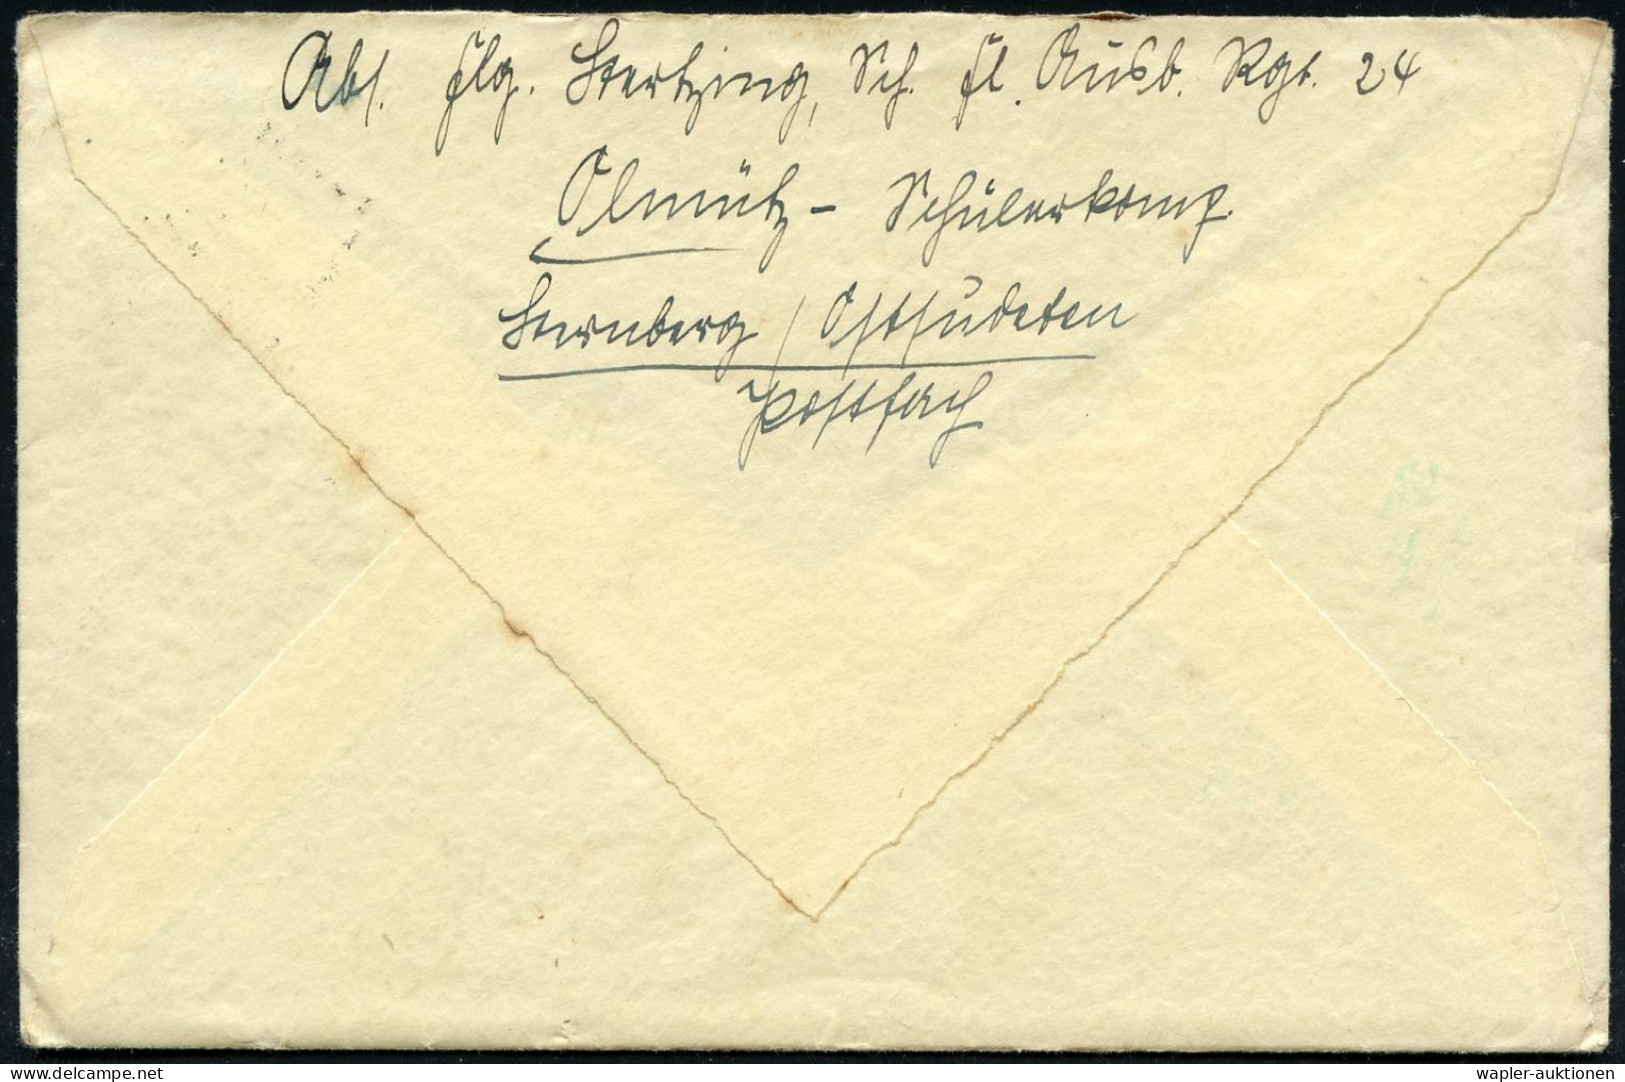 Abs. Flg. Stertzing, Sch. Fl. Ausb. Rgt. 24
Olmütz - Schülerkomp.
Sternberg / Ostsudeten
Postfach
delcampe.net
wapler-auktionen